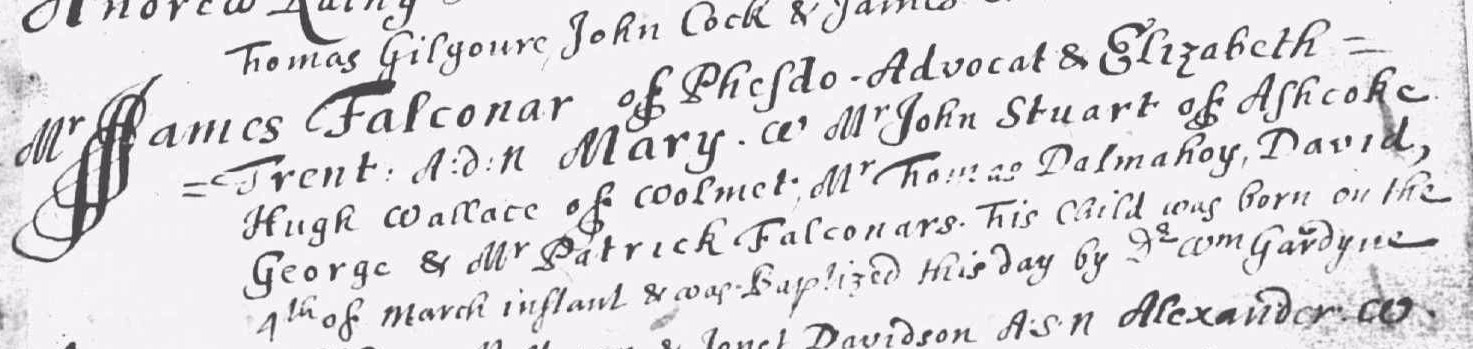 Andrew Laing
Thomas Gilgoure, John Cock & James
Mr James Falconar of Phesdo - Advocat & Elizabeth =
= Trent: A:d:n Mary. w Mr John Stuart of Ashcoke
Hugh Wallace of Woolmet, Mr Thomas Dalmahoy, David,
George & Mr Patrick Falconars. This Child was born on the
4th of March instant & was Baptized this day by Dr Wm Gardyne
& Jonet Davidson A:s:n Alexander. w.